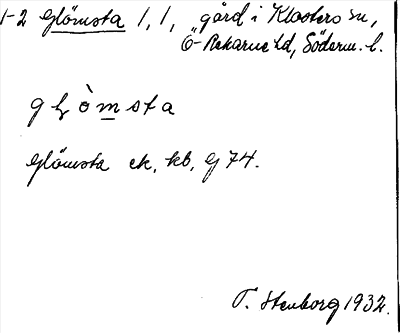 1-2 Glömsta 1,1, gård i Klosters sn,
Ö-Rekarne hd, Söderm. l.
Glömsta ek, kb, G 74.
T. Stenborg 1932.